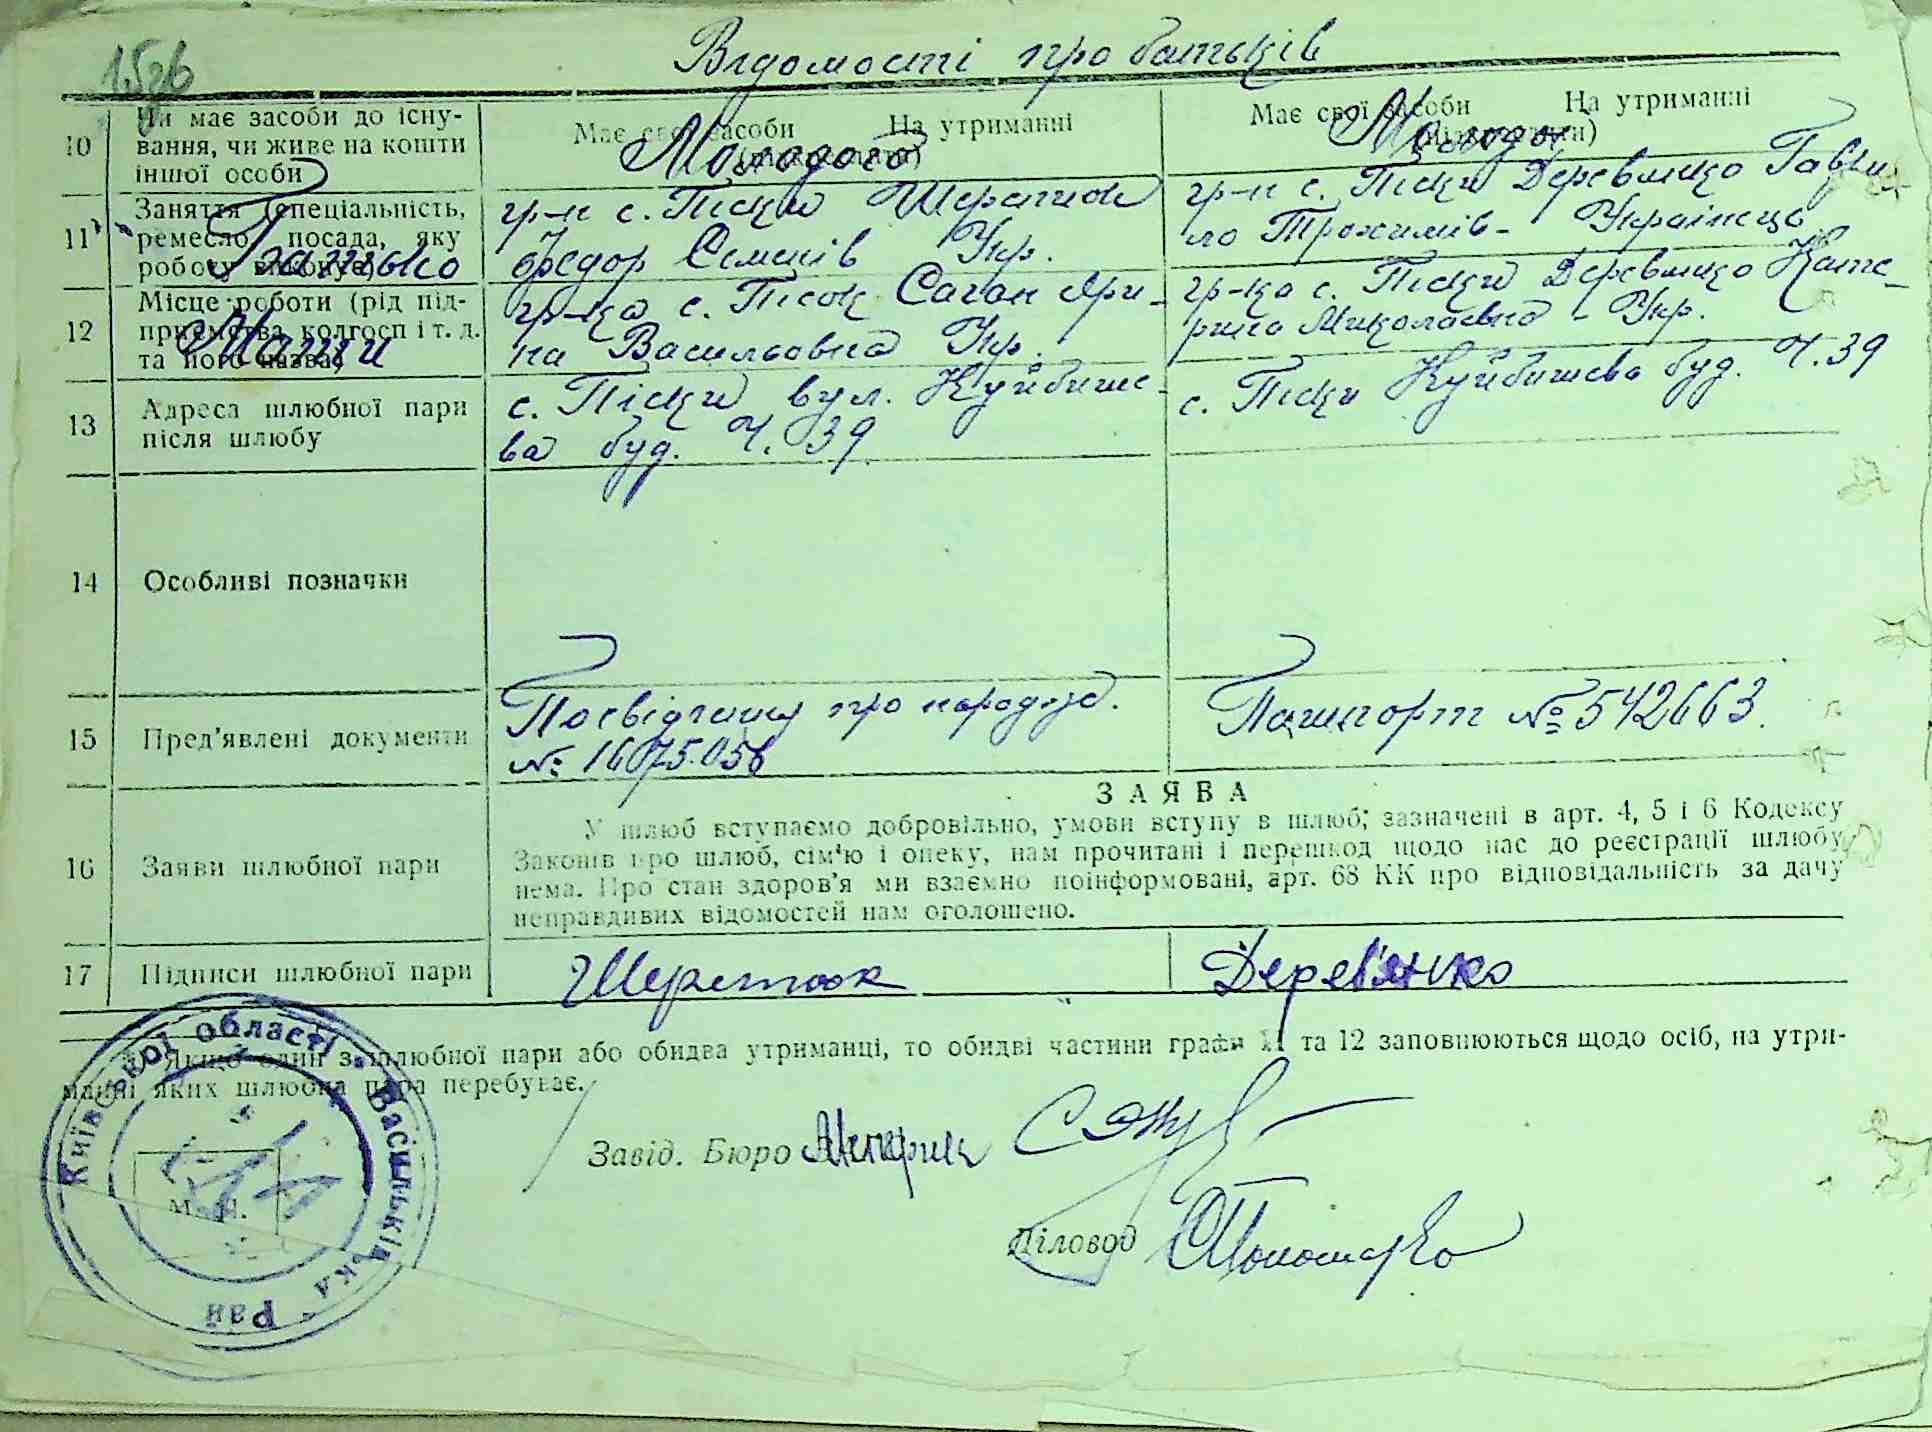 Відомості про батьків
10
Чи має засоби до існу-
вання, чи живе на кошти
іншої особи
Має свої засоби На утриманні
Молодого
Має свої засоби На утриманні
Молодої
11
Заняття (спеціальність,
ремесло, посада, яку
роботу виконує)
Батько
гр-н с. Піски Шереток
Федор Семенів Укр.
гр-н с. Піски Деревянко Гаври
ло Трохимів - Українець
12
Місце роботи (рід під-
приємства, колгосп і т. д.
та його назва)
Мати
гр-ка с. Пісок Саган Яри-
на Васильовна Укр.
гр-ка с. Піски Деревянко Кате-
рина Миколаєвна - Укр.
13
Адреса шлюбної пари
після шлюбу
с. Піски вул. Куйбише-
ва буд. Ч. 39
с. Піски Куйбишева буд. Ч. 39
14
Особливі позначки
15
Пред'явлені документи
Посвідчину про народж.
№
Пашпорт № 542663.
16
Заяви шлюбної пари
ЗАЯВА
У шлюб вступаємо добровільно, умови вступу в шлюб, зазначені в арт. 4, 5 і 6 Кодексу
Законів про шлюб, сім'ю і опеку, нам прочитані і перешкод щодо нас до реєстрації шлюбу
нема. Про стан здоров'я ми взаємно поінформовані, арт. 68 КК про відповідальність за дачу
неправдивих відомостей нам оголошено.
17
Підписи шлюбної пари
Шереток
Дерев'янко
Якщо один з шлюбної пари або обидва утриманці, то обидві частини графи 11 та 12 заповнюються щодо осіб, на утри-
манні яких шлюбна пара перебуває.
Завід. Бюро
Діловод Пономарко
Київської області Васильківська Рай
М. П.